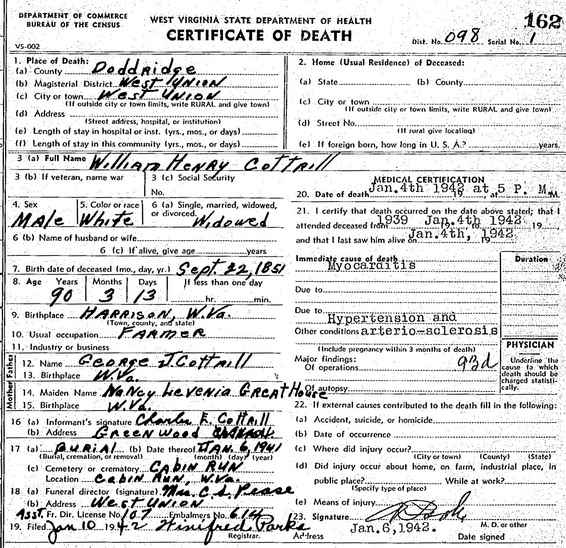 DEPARTMENT OF COMMERCE
BUREAU OF THE CENSUS
WEST VIRGINIA STATE DEPARTMENT OF HEALTH
CERTIFICATE OF DEATH
162
Dist. No. 098 Serial No. 1
VS-002
1. Place of Death:
(a) County Doddridge
(b) Magisterial District West Union
(c) City or town West Union
(If outside city or town limits, write RURAL and give town)
(d) Address
(Street address, hospital, or institution)
(e) Length of stay in hospital or inst. (yrs., mos., or days)
(f) Length of stay in this community (yrs., mos., or days)
2. Home (Usual Residence) of Deceased:
(a) State (b) County
(c) City or town
(If outside city or town limits, write RURAL and give town)
(d) Street No.
(If rural give location)
(e) If foreign born, how long in U. S. A.? years.
3 (a) Full Name William Henry Cottrill
3 (b) If veteran, name war
3 (c) Social Security
No.
4. Sex
Male
5. Color or race
White
6 (a) Single, married, widowed,
or divorced. Widowed
6 (b) Name of husband or wife
6 (c) If alive, give age years
7. Birth date of deceased (mo., day, yr.) Sept. 22, 1851
8. Age Years Months Days If less than one day
90 3 13 hr. min.
9. Birthplace Harrison, W.Va.
(Town, county, and state)
10. Usual occupation Farmer
11. Industry or business
Father
12. Name George J. Cottrill
13. Birthplace W.Va.
Mother
14. Maiden Name Nancy Levenia Greathouse
15. Birthplace W.Va.
16 (a) Informant's signature Charle E. Cottrill
(b) Address Greenwood
17 (a) Burial (b) Date thereof Jan. 6, 1941
(Burial, cremation, or removal) (month) (day) (year)
(c) Cemetery or crematory Cabin Run
Location Cabin Run, W.Va.
18 (a) Funeral director (signature) Mrs. C. S. Pease
(b) Address West Union
Asst. Fr. Dir. License No. 107 Embalmers No. 614
19. Filed Jan 10 1942 Winifred Parks
Registrar.
MEDICAL CERTIFICATION
20. Date of death Jan.4th 1942 at 5 P. M. M
21. I certify that death occurred on the date above stated; that I
attended deceased from 1939 Jan.4th 1942 19
and that I last saw him alive on Jan.4th, 1942 19
Immediate cause of death Duration
Myocarditis
Due to
Due to
Hypertension and
Other conditions arterio-sclerosis
(Include pregnancy within 3 months of death)
Major findings:
Of operations 93d
Of autopsy
PHYSICIAN
Underline the cause to which death should be charged statistically.
22. If external causes contributed to the death fill in the following:
(a) Accident, suicide, or homicide
(b) Date of occurrence
(c) Where did injury occur?
(City or town) (County) (State)
(d) Did injury occur about home, on farm, industrial place, in
public place? While at work?
(Specify type of place)
(e) Means of injury
23. Signature
M. D. or other
Jan.6,1942.
Address Date signed